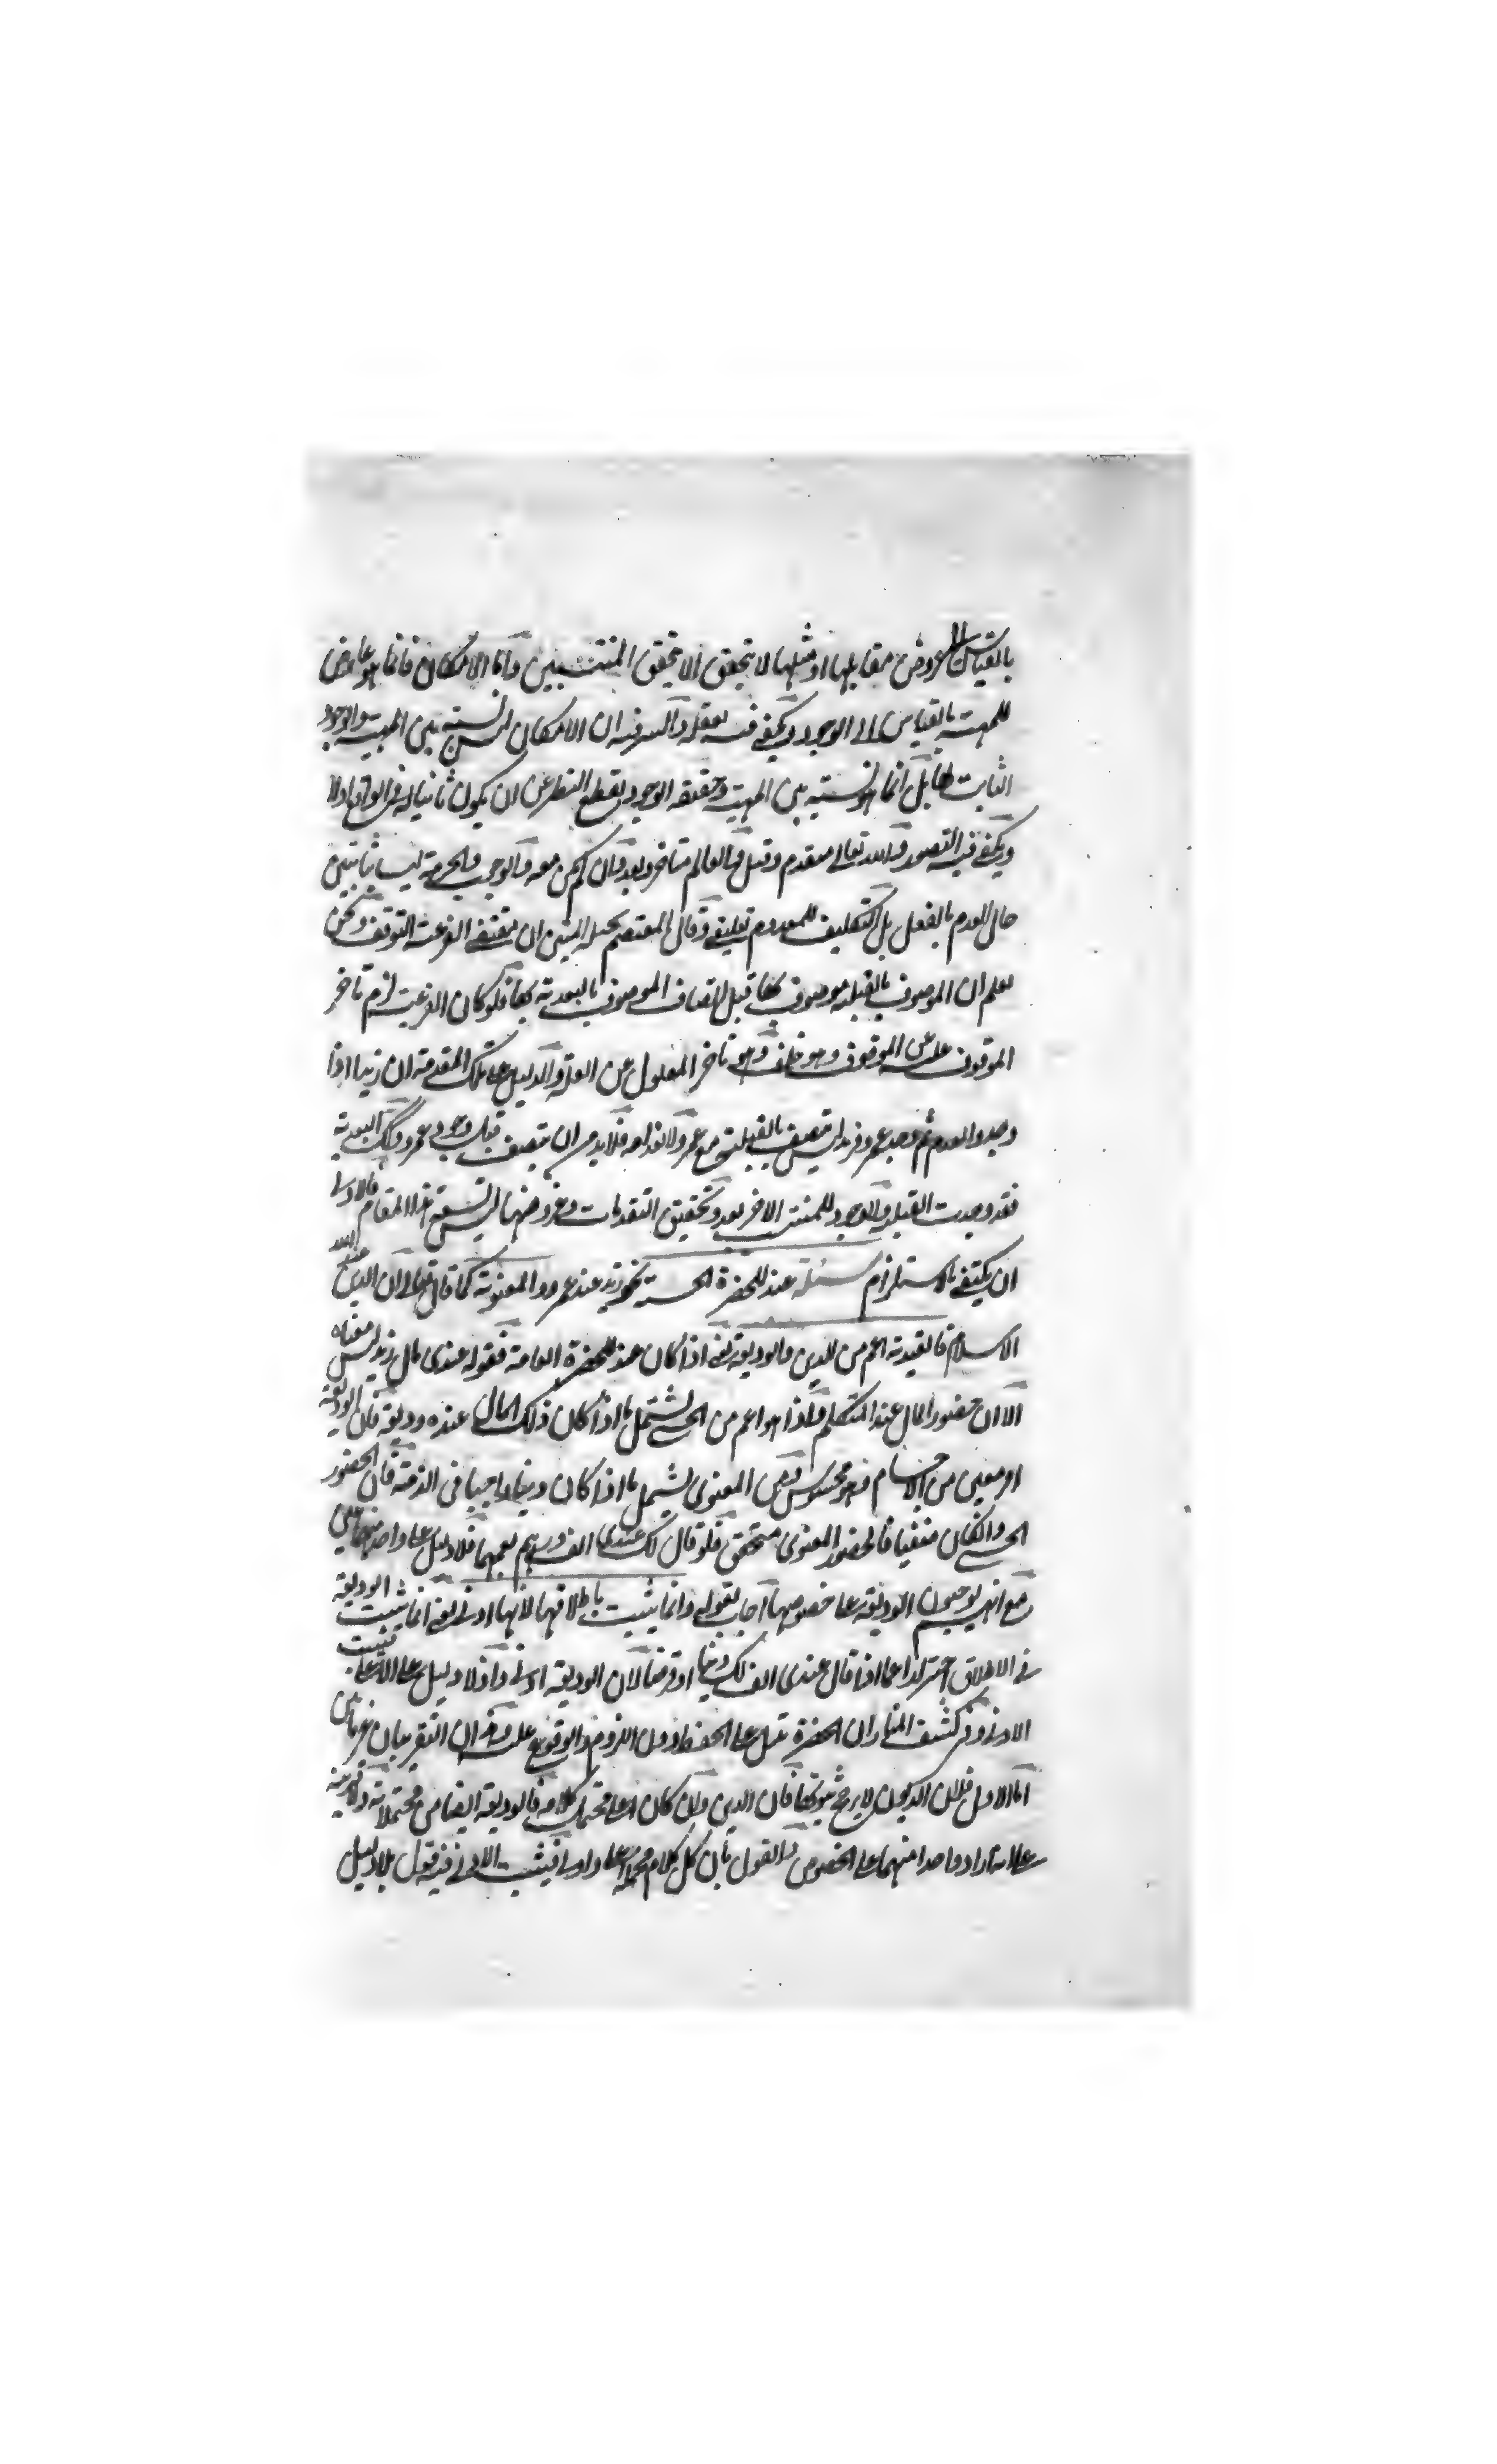 بالقياس الى عروض مقابلها او مثلها لا تتحقق الا بتحقق المنتسبين واما الامكان فانما هو عارض
للمهية بالقياس الى الوجود ويكفي فيه تعقله والسر فيه ان الامكان ليس نسبة بين المهية والوجود
الثابت لها بل انما هو نسبة بين المهية وحقيقة الوجود بقطع النظر عن ان يكون ثابتا له في الواقع او لا
ويكفي فيه التصور والله تعالى متقدم وقبل والعالم متاخر وبعد وان لم يكن معه والوجوب والحرمة ليسا ثابتين
حال العدم بالفعل بل التكليف للمعدوم تعليقي وقال المعتصم بحبله المتين ان مقتضى الفرعية التوقف ونحن
نعلم ان الموصوف بالقبلية موصوف بها قبل اتصاف الموصوف بالبعدية بها فلو كان الفرعية لزم تاخر
الموقوف عليه عن الموقوف وهو خلف وهو تاخر المعلول عن العلة والدليل على تلك المقدمة ان زيدا اذا
وجد وانعدم ثم وجد عمرو فزيد ليس يتصف بالقبلية مع عمرو لانعدامه فلا بد من ان يتصف قبل وجود عمرو وتلك البعدية
فقد وجدت القبلية والوجود للمنتسب الاخر بعد وتحقيق التقدمات ومعروضها ليس يسعه هذا المقام فالاولى
ان يكتفي بالاستلزام مسئلة عند للحضرة الحسية نحو زيد عند عمرو والمعنوية كما قال تعالى ان الدين عند الله
الاسلام فالعندية اعم من الدين والوديعة يعني اذا كان عند للحضرة العامة فقوله عندي مال زيد ليس معناه
الا ان حضور المال عند المتكلم ولذا هو اعم من الحسي يشتمل ما اذا كان ذلك المال عنده وديعة فان الوديعة
امر معين من الاجسام فهو محسوس ومن المعنوي يشتمل ما اذا كان دينا واجبا في الذمة فان الحضور
الحسي وان كان منتفيا فالحضور المعنوي متحقق فلو قال لك عندي الف درهم يعمهما فلا دليل على واحد منهما على
مع انهم يوجبون الوديعة على خصوصها اجاب بقوله وانما يثبت باطلاقها لانها ادنى يعني انما يثبت الوديعة
في الاطلاق احترازا عما اذا قال عندي الف لك دينا او قرضا لان الوديعة ادنى واذ لا دليل على الاعلى فيثبت
الادنى وفي كشف المنار ان الحضرة تدل على الحفظ دون اللزوم والوقوع عليه وان التقريبان غير تامين
اما الاول فلان الديون لا يرجح ثبوتها فان الدين وان كان اعلى محتملات كلامه فالوديعة ايضا من محتملاته ولا قرينة
على انه اراد واحدا منهما على الخصوص والقول بان كل كلام محتمل اعلى وادنى فيثبت الادنى فيه قول بلا دليل